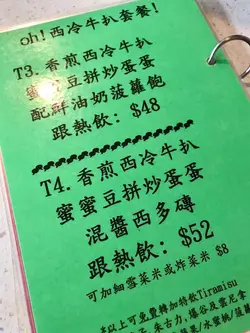 oh!西冷牛扒套餐!
T3. 香煎西冷牛扒
蜜蜜豆拼炒蛋蛋
配鮮油奶菠蘿飽
跟熱飲: $48
T4. 香煎西冷牛扒
蜜蜜豆拼炒蛋蛋
混醬西多磚
跟熱飲: $52
可加細雪菜米或炸菜米 $8
以上可免費轉加特飲Tiramisu
朱古力, 爆谷及雲尼拿